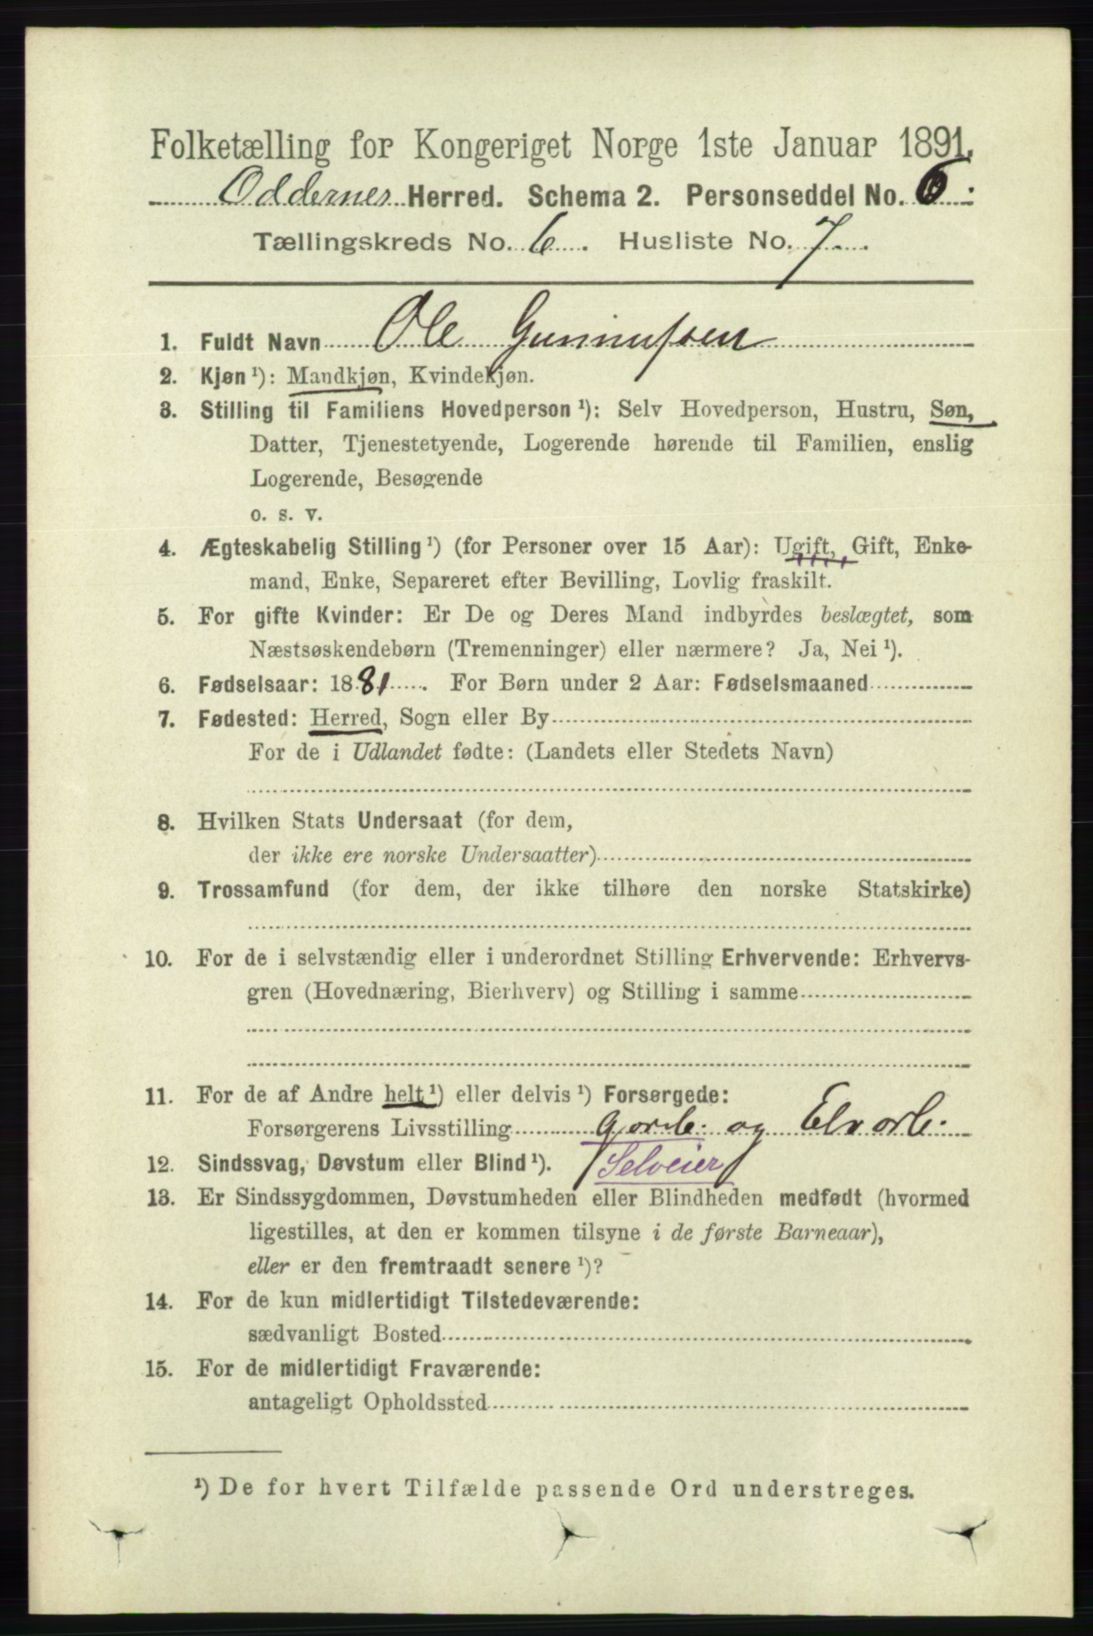 Folketælling for Kongeriget Norge 1ste Januar 1891.
Oddernes Herred. Schema 2. Personseddel No. 6.
Tællingskreds No. 6. Husliste No. 7.
1. Fuldt Navn Ole Gunnufsen
2. Kjøn ¹): Mandkjøn, Kvindekjøn.
3. Stilling til Familiens Hovedperson ¹): Selv Hovedperson, Hustru, Søn,
Datter, Tjenestetyende, Logerende hørende til Familien, enslig
Logerende, Besøgende
o. s. v.
4. Ægteskabelig Stilling ¹) (for Personer over 15 Aar): Ugift, Gift, Enke-
mand, Enke, Separeret efter Bevilling, Lovlig fraskilt.
5. For gifte Kvinder: Er De og Deres Mand indbyrdes beslægtet, som
Næstsøskendebørn (Tremenninger) eller nærmere? Ja, Nei ¹).
6. Fødselsaar: 1881. For Børn under 2 Aar: Fødselsmaaned
7. Fødested: Herred, Sogn eller By
For de i Udlandet fødte: (Landets eller Stedets Navn)
8. Hvilken Stats Undersaat (for dem,
der ikke ere norske Undersaatter)
9. Trossamfund (for dem, der ikke tilhøre den norske Statskirke)
10. For de i selvstændig eller i underordnet Stilling Erhvervende: Erhvervs-
gren (Hovednæring, Bierhverv) og Stilling i samme
11. For de af Andre helt ¹) eller delvis ¹) Forsørgede:
Forsørgerens Livsstilling og Elvarb.
12. Sindssvag, Døvstum eller Blind ¹). Selveier
13. Er Sindssygdommen, Døvstumheden eller Blindheden medfødt (hvormed
ligestilles, at den er kommen tilsyne i de første Barneaar),
eller er den fremtraadt senere ¹)?
14. For de kun midlertidigt Tilstedeværende:
sædvanligt Bosted
15. For de midlertidigt Fraværende:
antageligt Opholdssted
¹) De for hvert Tilfælde passende Ord understreges.